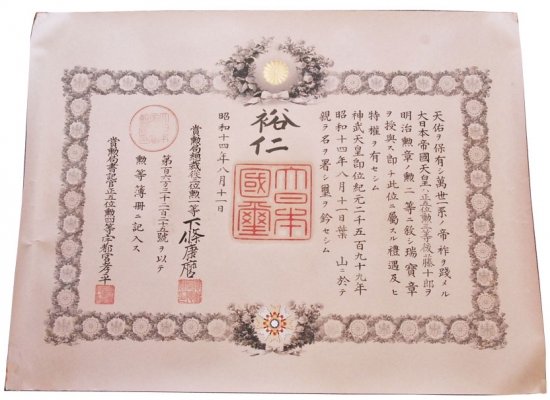 天佑ヲ保有シ萬世一系ノ帝祚ヲ踐メル
大日本帝國天皇ハ正五位勲三等後藤十郎ヲ
明治勲章ノ勲二等ニ敍シ瑞寶章
ヲ授與ス即チ此位ニ屬スル禮遇及ヒ
特權ヲ有セシム
神武天皇即位紀元二千五百九十九年
昭和十四年八月十一日葉山ニ於テ
親ラ名ヲ署シ璽ヲ鈐セシム
裕仁
大日本國璽
昭和十四年八月十一日
賞勲局總裁 勲一等下條康麿
二十五號ヲ以テ
勲等簿冊ニ記入ス
賞勲局書記官正五位勲四等宇都宮孝平